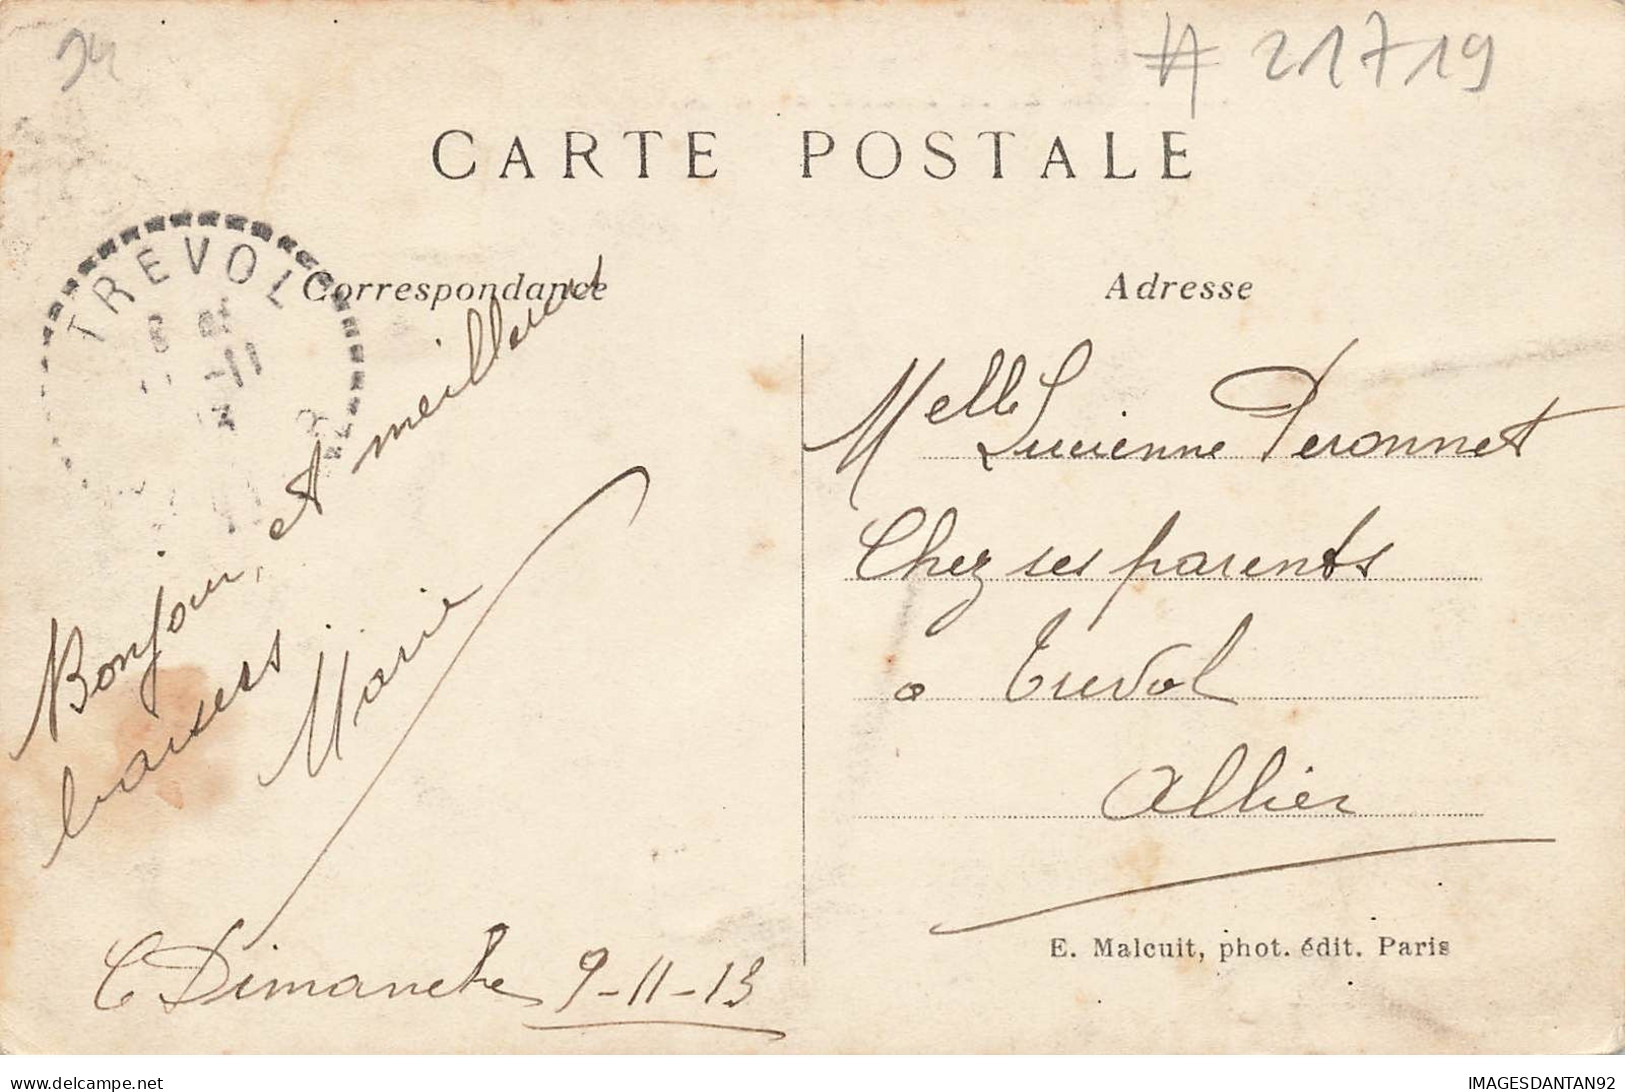 94
# 21719
CARTE POSTALE
TREVOL
Correspondance
Adresse
Bonjour, et meilleurs
baisers
Marie
Dimanche 9-11-13
Melle Lucienne Peronnet
Chez ses parents
à Trevol
Allier
E. Malcuit, phot. édit. Paris
https://www.delcampe.net
IMAGESDANTAN92